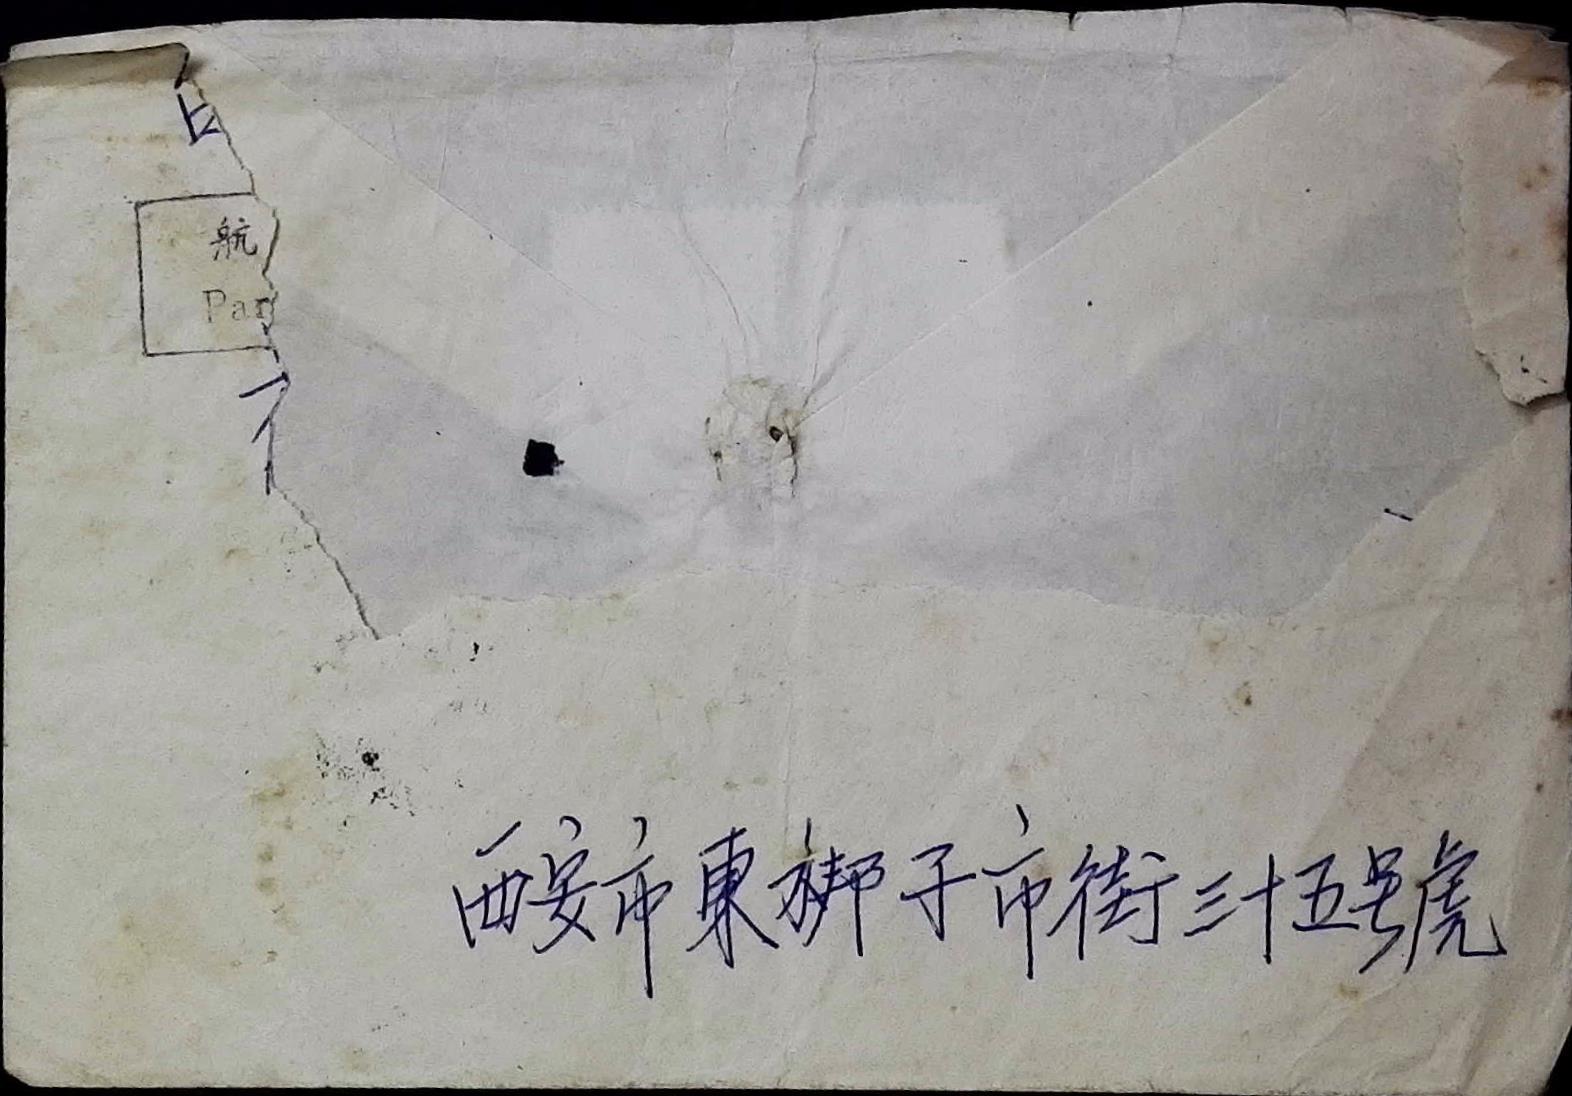 航
Par
西安市東梆子市街三十五號